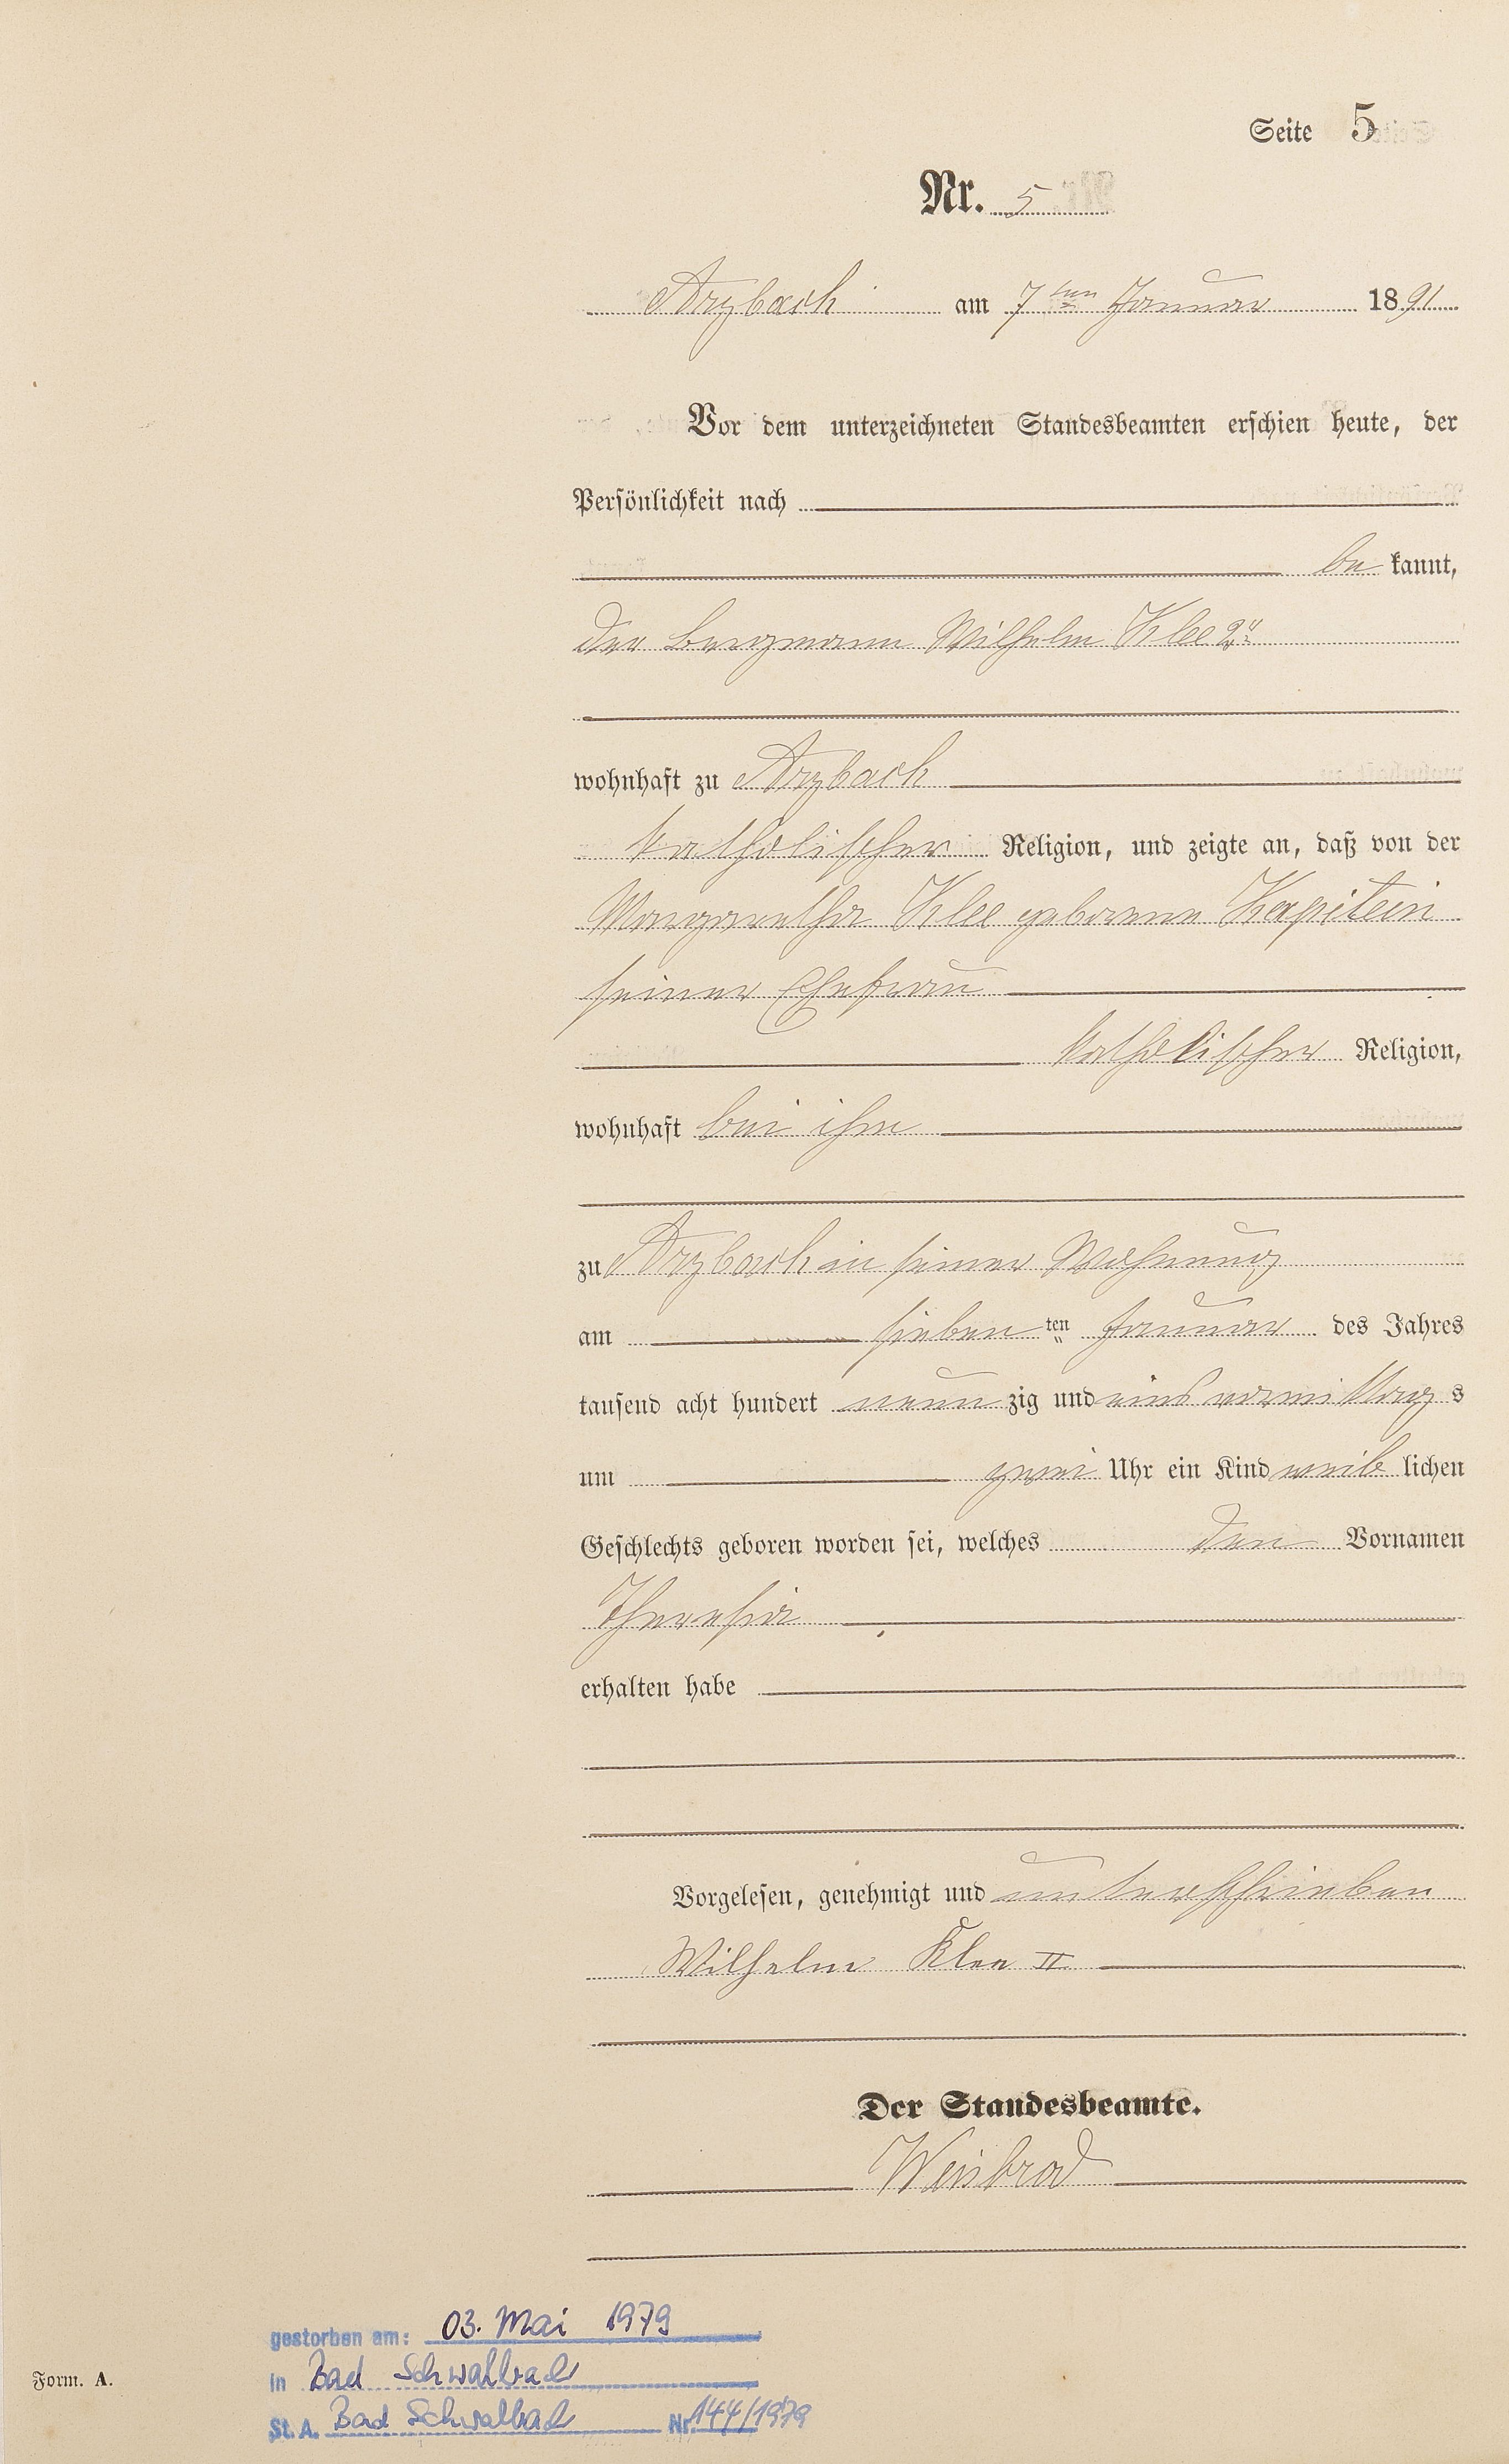 Seite 5
Nr. 5
Arzbach am 7ten Januar 1891
Vor dem unterzeichneten Standesbeamten erschien heute, der
Persönlichkeit nach
be kannt,
der Bergmann Wilhelm Klee 2r
wohnhaft zu Arzbach
katholischer Religion, und zeigte an, daß von der
Margaretha Klee geborene Kapitein
seiner Ehefrau
katholischer Religion,
wohnhaft bei ihm
zu Arzbach in seiner Wohnung
am sieben ten Januar des Jahres
tausend acht hundert neun zig und eins vormittag s
um zwei Uhr ein Kind weib lichen
Geschlechts geboren worden sei, welches den Vornamen
Theresia
erhalten habe
Vorgelesen, genehmigt und unterschrieben
Wilhelm Klee II
Der Standesbeamte.
Weisbrod
gestorben am: 03. Mai 1979
in Bad Schwalbach
Form. A.
St. A. Bad Schwalbach Nr. 144/1979